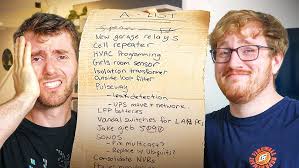 A-LIST
New garage relays
Cell repeater
HVAC Programming
Girls room sensor
Isolation transformer
Outside loop filter
Pulseway
- Leak detection
- UPS move + network
LFP batteries
Vandal switches for LAN PCs
Jake get 5090
SONOS
- Fix multicast?
- Replace w/ Ubiquiti?
Consolidate NVRs